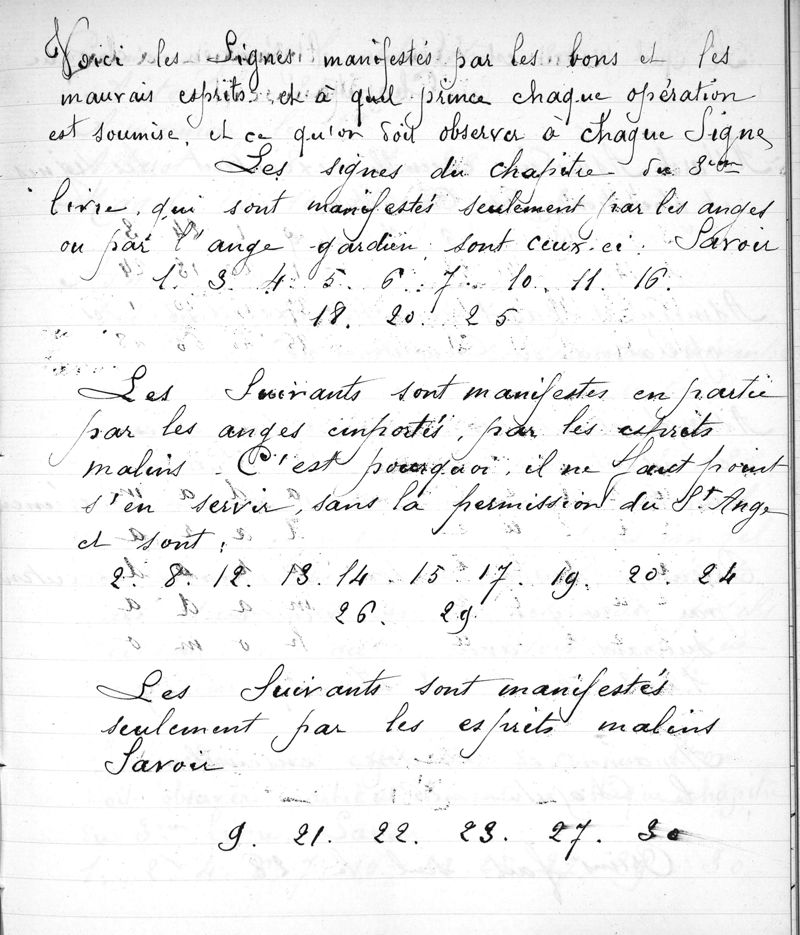 Voici les Signes manifestés par les bons et les
mauvais esprits et à quel prince chaque opération
est soumise, et ce qu'on doit observer à chaque Signe
Les signes du chapitre du 3em
livre, qui sont manifestés seulement par les anges
ou par l'ange gardien, sont ceux-ci. Savoir
1. 3. 4. 5. 6. 7. 10. 11. 16.
18. 20. 25
Les Suivants sont manifestes en partie
par les anges emportés, par les esprits
malins. C'est pourquoi, il ne faut point
s'en servir, sans la permission du St Ange
et sont:
2. 8. 12. 13. 14. 15. 17. 19. 20. 24
26. 29
Les Suivants sont manifestés
seulement par les esprits malins
Savoir
9. 21. 22. 23. 27. 30